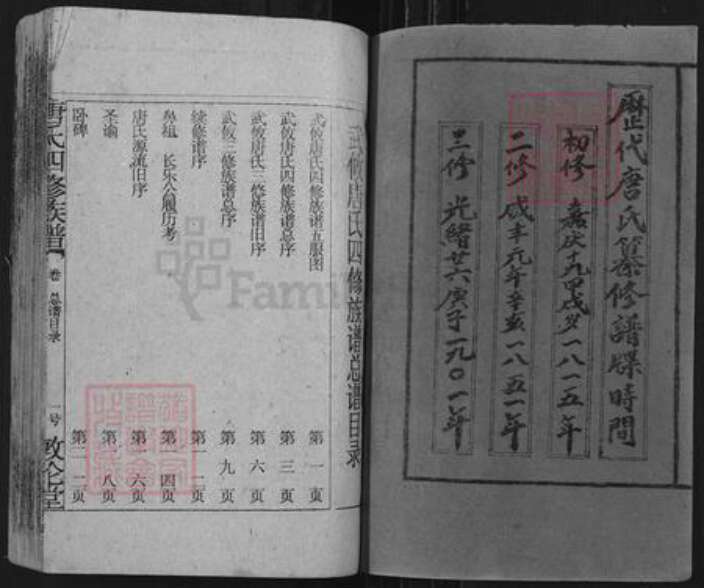 歷代唐氏纂修譜牒時間
初修 嘉庆十九甲戌岁一八一五年
二修 咸丰元年辛亥一八五一年
三修 光緒廿六庚子一九〇一年
武攸唐氏四修族谱总谱目录
武攸唐氏四修族谱五服图 第一页
武攸唐氏四修族谱总序 第三页
武攸唐氏三修族谱旧序 第六页
武攸三修族谱总序 第九页
续修谱序 第一二页
粤祖 长乐公履历考 第一四页
唐氏源流旧序 第一六页
圣谕 第一八页
卧碑
唐氏四修族譜 卷 总谱目录 一号 敦伦堂
Family